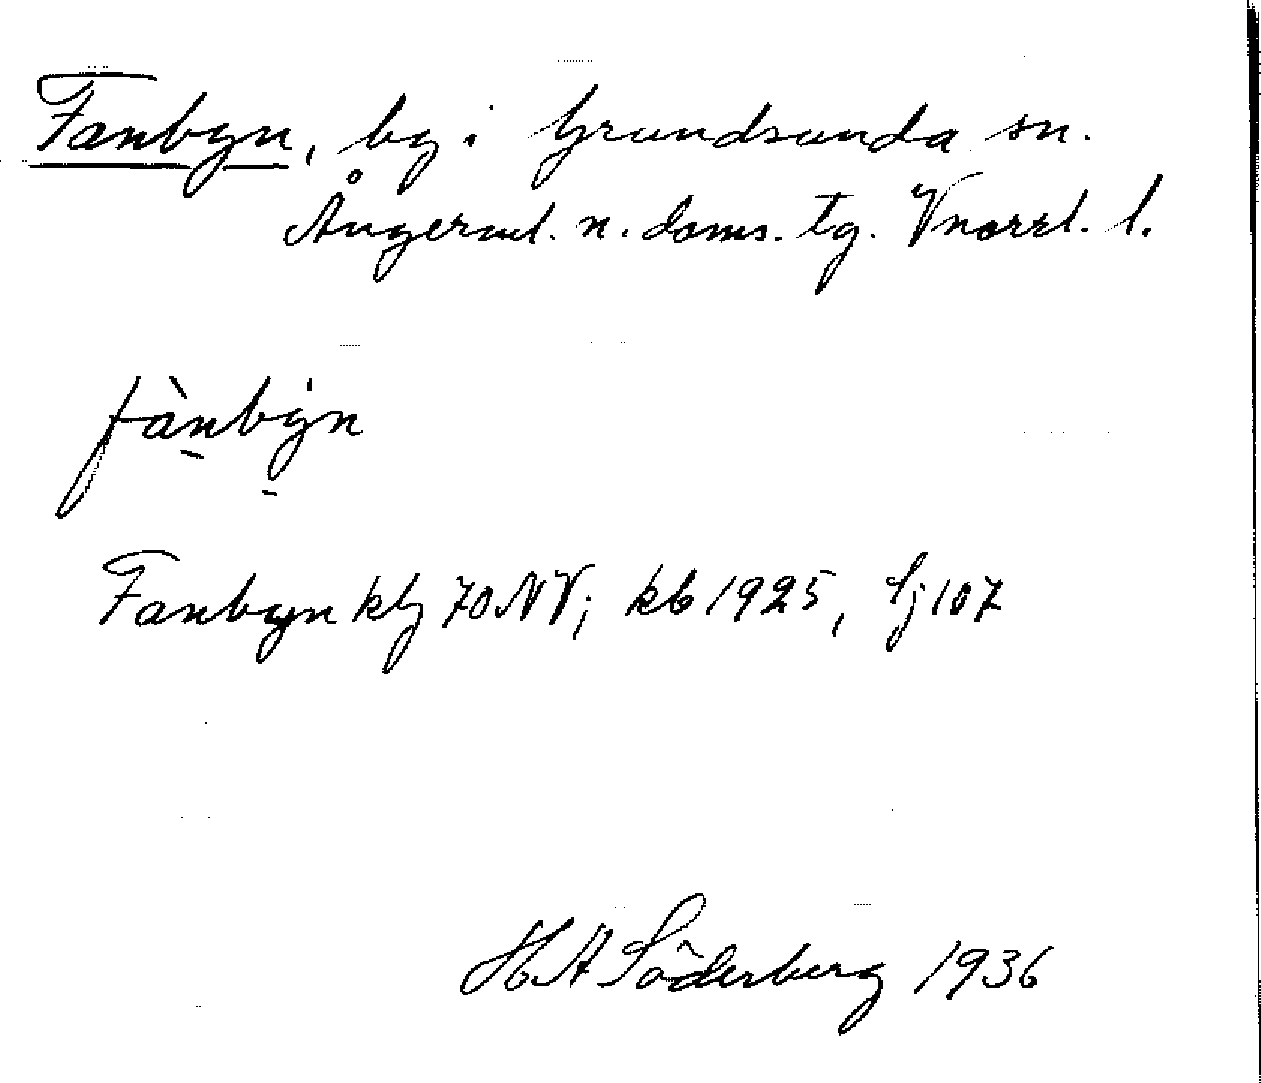 Fanbyn, by i Grundsunda sn.
Ångerml. n. doms. tg. Vnorrl. l.
fànbẏn
Fanbyn kbg 70 NV; kb 1925, Sj 107
H A Söderberg 1936